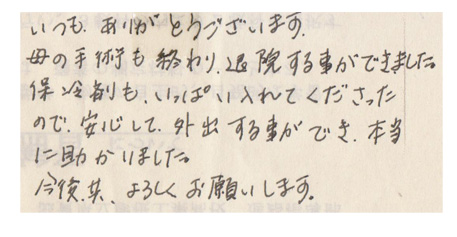 いつも、ありがとうございます。
母の手術も終わり、退院する事ができました。
保冷剤も、いっぱい入れてくださった
ので、安心して、外出する事ができ、本当
に助かりました。
今後共、よろしくお願いします。